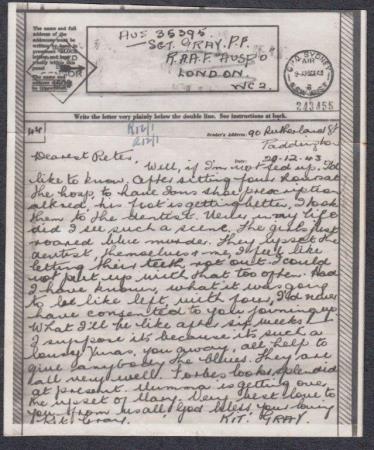 The name and full
address of the
addressee must be
written by hand in
prominent "BLOCK"
lettering and kept
inside this panel.
AUS 35395.
SGT. GRAY. P.P.
R.A.A.F. "AUSPO"
LONDON.
WC2.
G.P.O. SYDNEY
AIR
243455
Write the letter very plainly below the double line. See instructions at back.
Sender's Address: 90 Sutherland St
Paddington
Dearest Peter,
Date: 29-12-43
Well, if I'm not fed up, I'd
like to know. After sitting four hours at
the hosp. to have Toms shoe prescription
altered, his foot is getting better, I took
them to the dentist. Never in my life
did I see such a scene. The girls just
roared blue murder. They upset the
dentist, themselves & me. I feel like
letting their teeth rot out. I could
not put up with that too often. Had
I have known, what it was going
to be like left, with four, I'd never
have consented to your joining up.
What I'll be like after six weeks!
I suppose its because its such a
lousy Xmas, you away, all help to
give anybody the blues. They are
all very well. Forbes looks splendid
at present. Mumma is getting over
the upset of Mary. Very best love to
you from us all God bless, your loving
Kit. Gray.
KIT. GRAY.